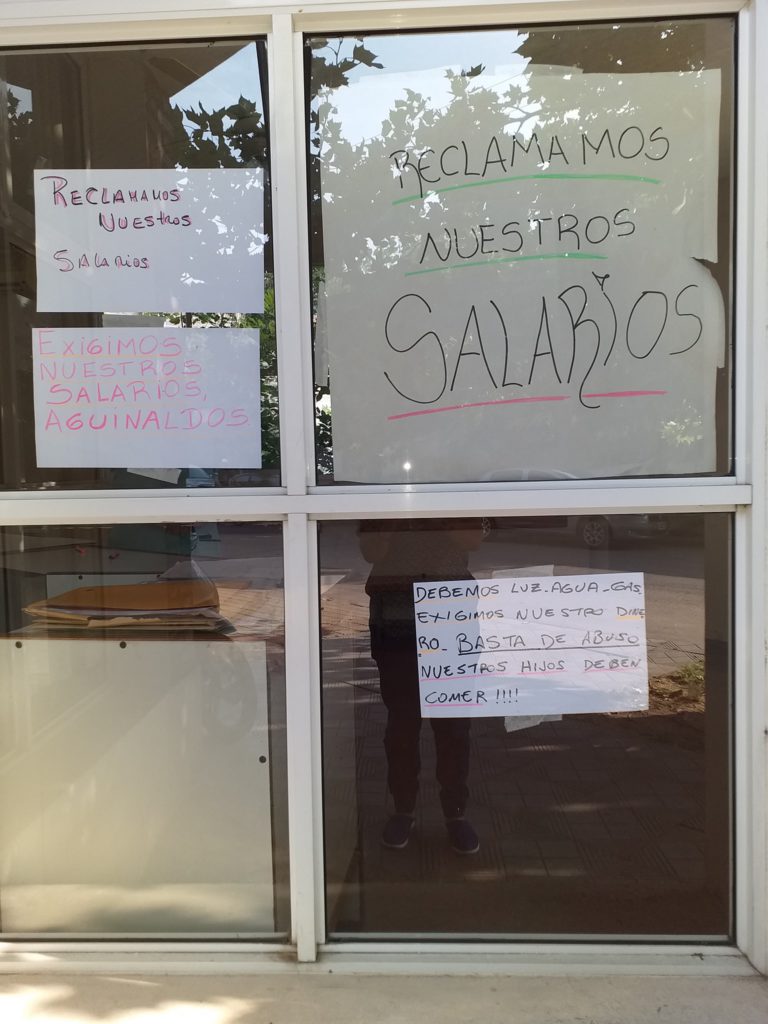 RECLAMAMOS
NUESTROS
SALARIOS
EXIGIMOS
NUESTROS
SALARIOS,
AGUINALDOS.
RECLAMAMOS
NUESTROS
SALARIOS
DEBEMOS LUZ-AGUA-GAS.
EXIGIMOS NUESTRO DINE
RO- BASTA DE ABUSO
NUESTROS HIJOS DEBEN
COMER !!!!